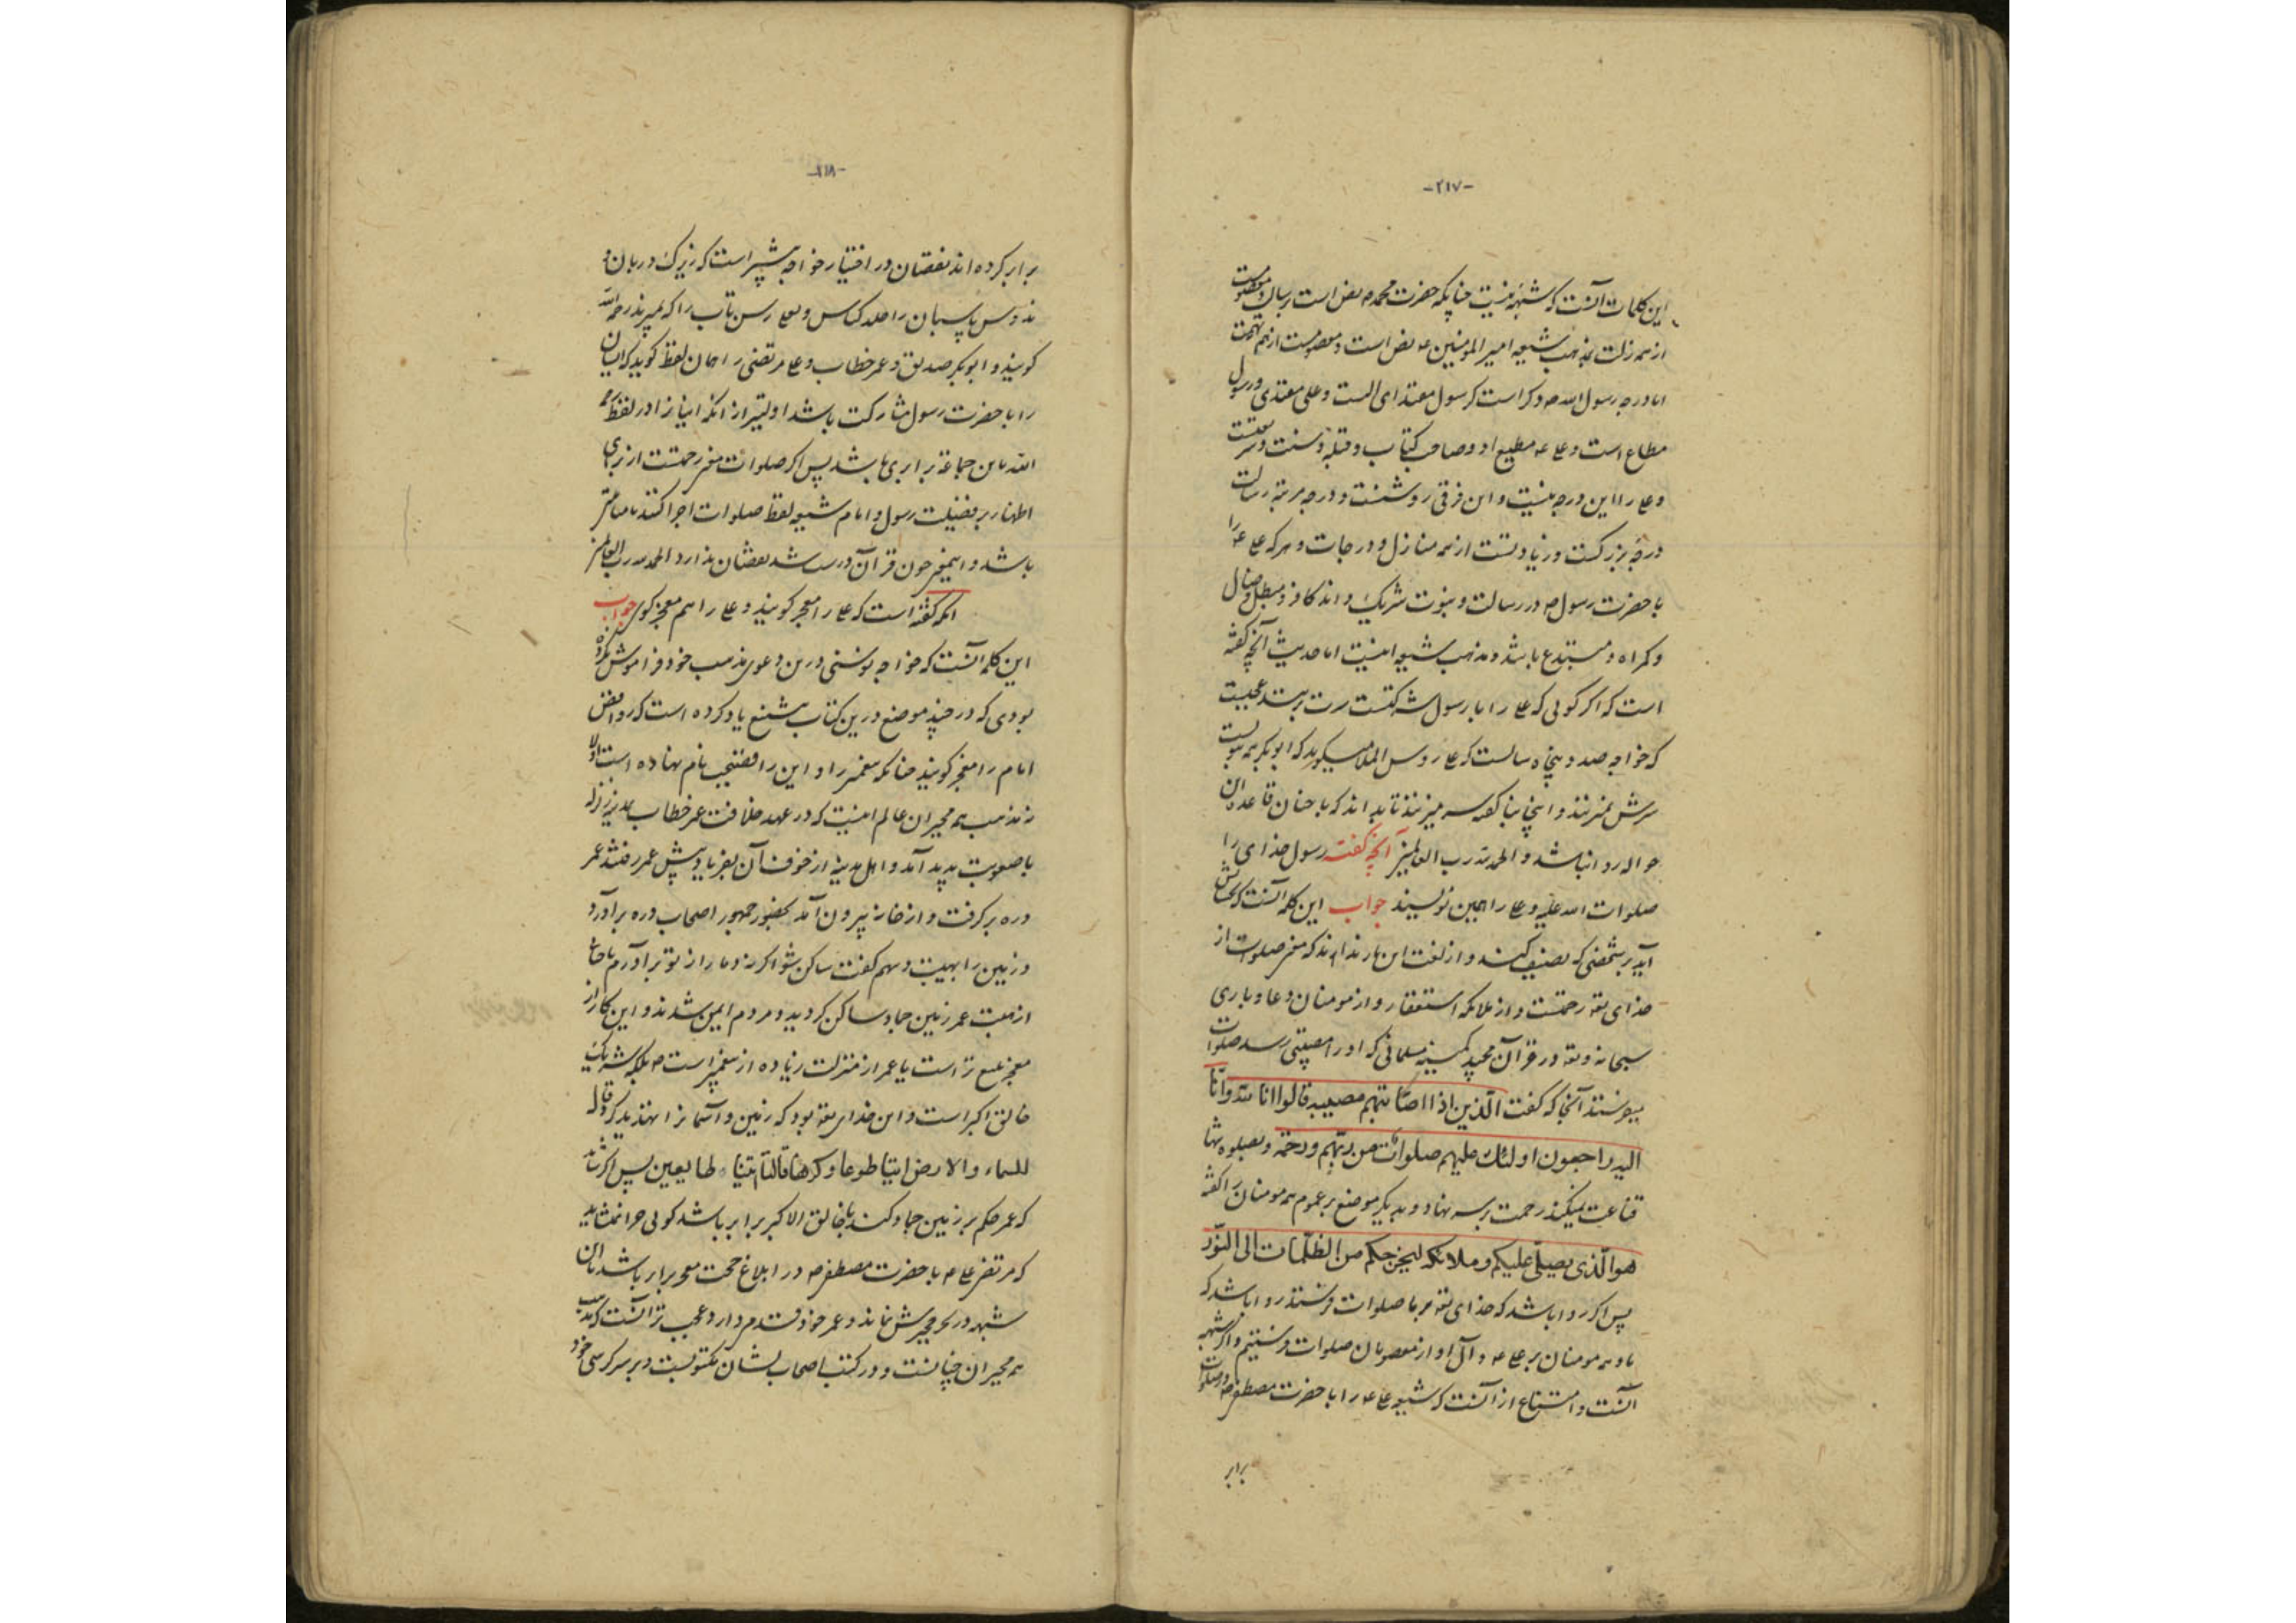 -۲۱۷-
این کلمات آنست که شبهه نیست چنانکه حضرت محمد ص نص است برسالت و معصومست
از همه زلت بمذهب شیعه امیرالمومنین ع نص است و معصومست از همه تهمت
اما درجه رسول الله ص دگر است که رسول مقتدای است و علی مقتدی و رسول
مطاع است و علی ع مطیع او و صاحب کتاب و قبله و سنت و شریعتست
و علی را این درجه نیست و این فرقی روشنست و درجه مرتبه رسالت
درجهٔ بزرگست و زیادتست از همه منازل و درجات و هر که علی ع را
با حضرت رسول ص در رسالت و نبوت شریک داند کافر و مبطل و ضال
و گمراه و مبتدع باشد و مذهب شیعه اینست اما حدیث آنچه گفته
است که اگر گویی که علی را با رسول شرکتست سرت ببرند عجبست
که خواجه صد و پنجاه سالست که علی رؤس الملا میگوید که ابوبکر
سرش نمیبرند و اینجا بناگفته سر میزنند تا بداند که با چنان قاعده این
حواله روا نباشد و الحمد لله رب العالمین آنچه گفته رسول خدای را
صلوات الله علیه و علی را همین نویسند جواب این کلمه آنست که
آید بر شخصی که تصنیف کند و از لغت این بار نداند که معنی صلوات از
خدای تعه رحمتست و از ملائکه استغفار و از مومنان دعا و باری
سبحانه و تعه در قرآن مجید کمینه مسلمانی که او را مصیبتی رسد صلوات
میفرستد آنجا که گفت الّذین اذا اصابتهم مصیبه قالوا انا لله وانّا
الیه راجعون اولئک علیهم صلوات من ربّهم ورحمة و بصلوه تنها
قناعت نمیکند رحمت بر سر نهاد و بدیگر موضع بر عموم همه مومنان را گفته
هو الّذی یصلّی علیکم و ملائکته لیخرجکم من الظلمات الی النّور
پس اگر روا باشد که خدای تعه بر ما صلوات فرستد روا باشد که
ما و همه مومنان بر علی ع و آل او از معصومان صلوات فرستیم و اگر شبهه
آنست و امتناع از آنست که شیعه علی ع را با حضرت مصطفی ص در صلوات
برابر
-۲۱۸-
برابر کرده اند نقصان در اختیار خواجه بیشتر است که
پاسبان را کناس و رسن تاب را که بمیرند رحمه الله
گویند و ابوبکر صدیق و عمر خطاب و علی مرتضی را همان لفظ گویند که ایشان
را با حضرت رسول مشارکت باشد اولیتر از آنکه اینان را در لفظ رحمه
الله با این جماعة برابری باشد پس اگر صلوات معنی رحمتست از برای
اظهار بر فضیلت رسول و امام شیعه لفظ صلوات اجرا کنند
باشد و این معنی چون قرآن درست شد نقصان ندارد الحمد لله رب العالمین
آنکه گفته است که علی را معجز گویند و علی را هم معجز گوی جواب
این کلمه آنست که خواجه نوسنی درین دعوی مذهب خود فراموش نکرده
بودی که در چند موضع درین کتاب بشنیع یاد کرده است که روافض
امام را معجز گویند چنانکه پیغمبر را و این را نام نهاده است و الا
نه مذهب همه مجبران عالم اینست که در عهد خلافت عمر خطاب بمدینه زلزله
با صعوبت پدید آمد و اهل مدینه از خوف آن بفریاد پیش عمر رفتند عمر
دره برگرفت و از خانه بیرون آمد بحضور جمهور اصحاب دره برآورد
و زمین را بهیبت و سهم گفت ساکن شو اگر نه دمار از تو برآورم
از هیبت عمر زمین جماد ساکن گردید و مردم ایمن شدند و این کار از
معجز تر است یا عمر از منزلت زیاده از پیغمبر است ص بلکه شریک
خالق اکبر است و این خدای تعه بود که زمین و آسمان را تهدید کرد و قال
للسماء والارض ائتیا طوعا وکرها قالتا اتینا طایعین پس اگر شاید
که عمر حکم بر زمین جماد کند با خالق الاکبر برابر باشد گویی چرا نشاید
که مرتضی علی ع با حضرت مصطفی ص در ابلاغ حجت معجز برابر باشد تا این
شبهه در بحر مجبرش نماند و عمر خود قدم دارد و عجب تر آنست که مذهب
همه مجبران چنانست و در کتب اصحاب ایشان مکتوبست و بر سر کرسی خود